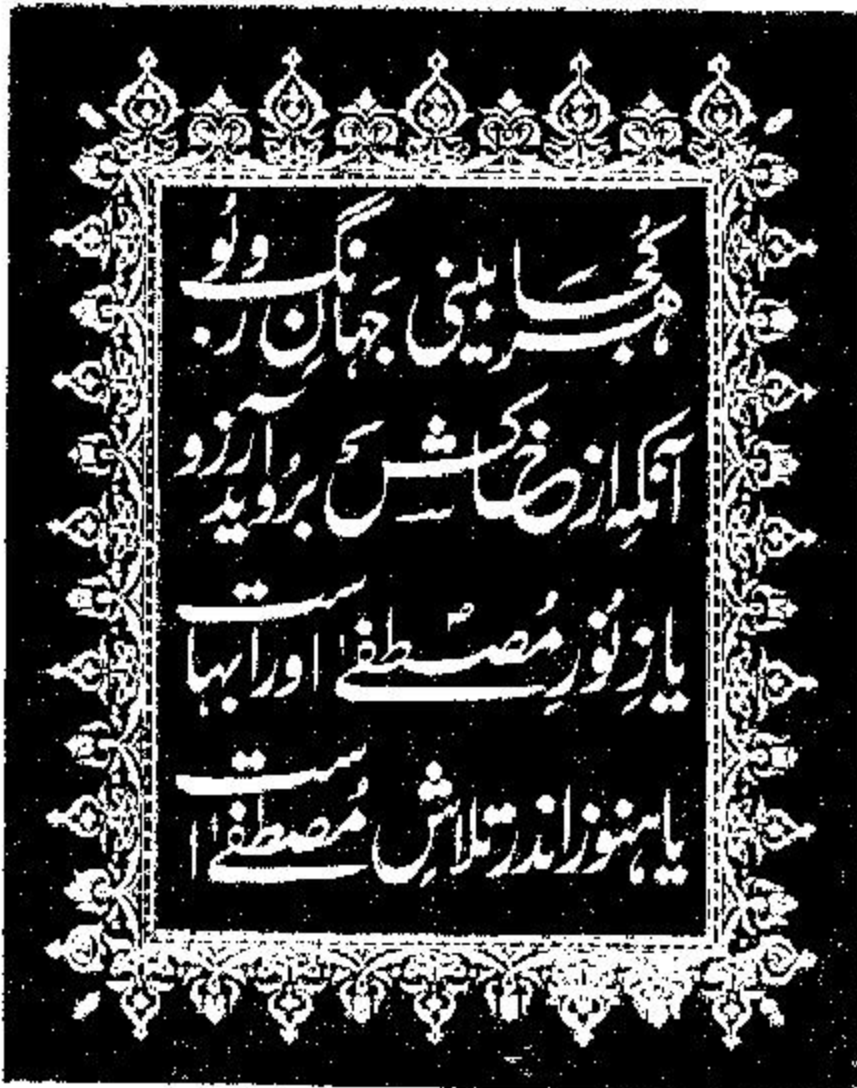 ہر کُجا بینی جَہانِ رنگ و بُو
آنکہ از خاکش بروُید آرزو
یا زِ نُورِ مُصطفیٰؐ اورا بہاست
یا ہنوز اندر تلاشِ مُصطفیٰ است